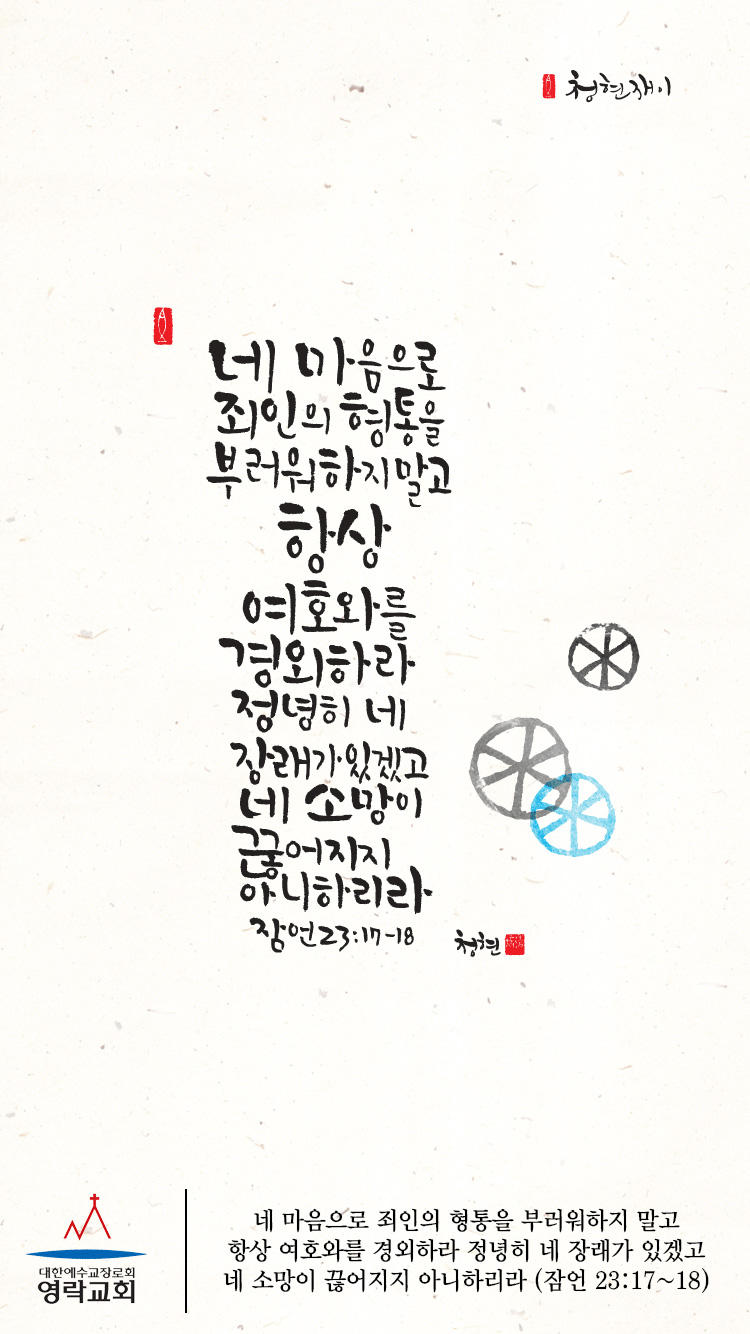 청현재이
네 마음으로
죄인의 형통을
부러워하지 말고
항상
여호와를
경외하라
정녕히 네
장래가 있겠고
네 소망이
끊어지지
아니하리라
잠언 23:17-18
청현
대한예수교장로회
영락교회
네 마음으로 죄인의 형통을 부러워하지 말고
항상 여호와를 경외하라 정녕히 네 장래가 있겠고
네 소망이 끊어지지 아니하리라 (잠언 23:17~18)